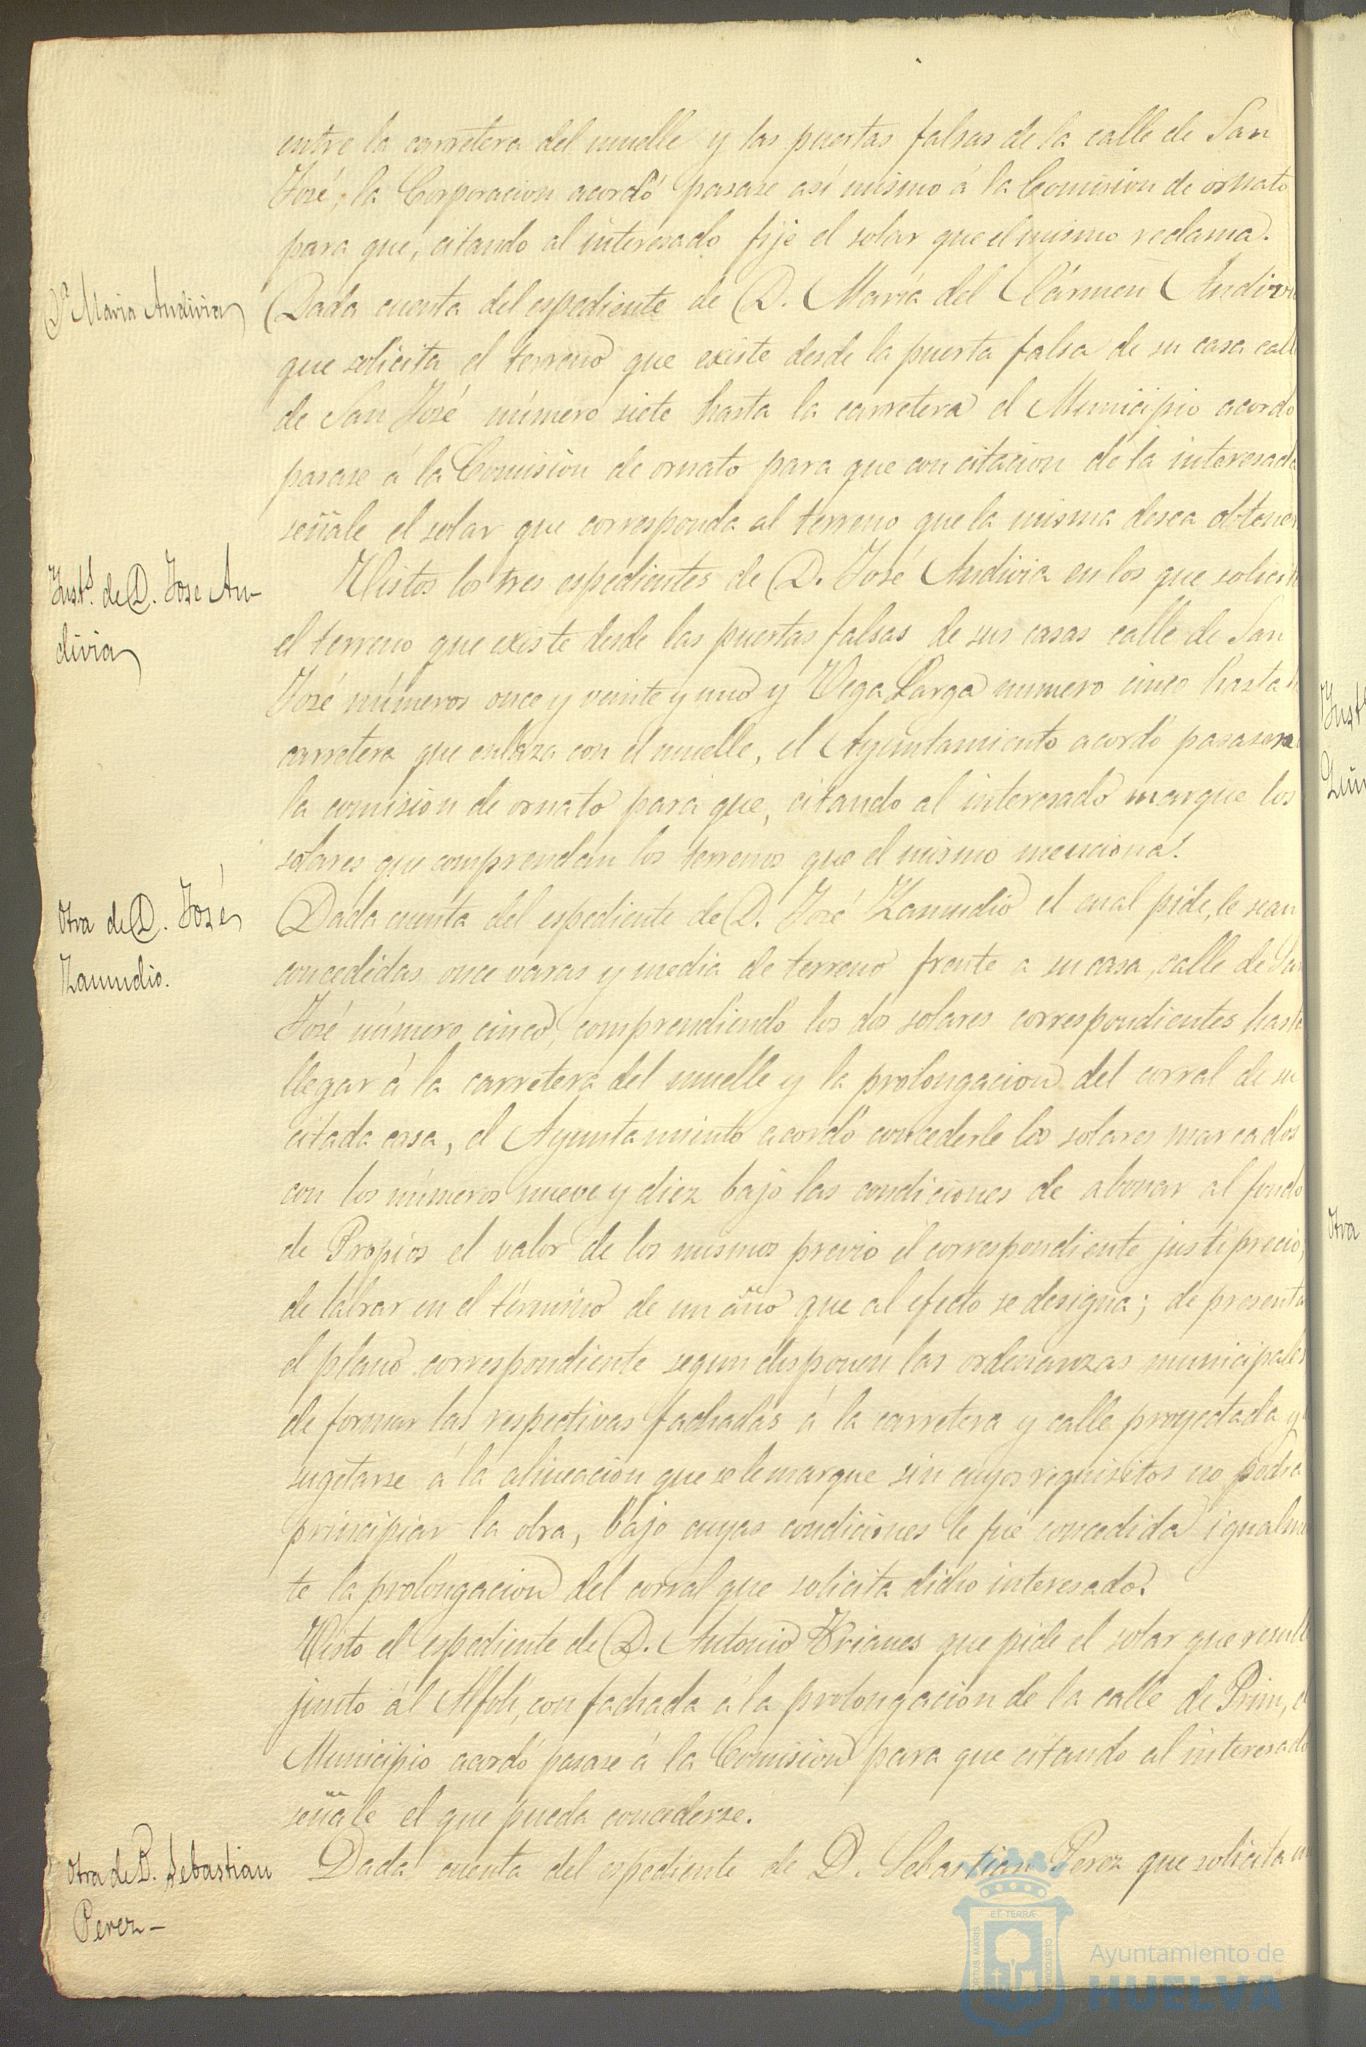 entre la carretera del muelle y las puertas falsas de la calle de San
José, la Corporacion acordó pasase así mismo á la Comision de ornato
para que, citando al interesado, fije el solar que el mismo reclama.
Dª Maria Andivia
Dada cuenta del espediente de D. María del Cármen Andivia
que solicita el terreno que existe desde la puerta falsa de su casa call
de San José número siete hasta la carretera el Municipio acordo
pasase á la Comision de ornato para que con citacion de la interesada
señale el solar que corresponda al terreno que la misma desea obtener
Instª de D. Jose An-
divia
Vistos los tres espedientes de D. José Andivia en los que solicita
el terreno que existe desde las puertas falsas de sus casas calle de San
José números once y veinte y uno y Vega Larga numero cinco hasta
carretera que enlaza con el muelle, el Ayuntamiento acordó pasasen
la comision de ornato para que, citando al interesado marque los
solares que comprendan los terrenos que el mismo menciona.
Otra de D. José
Zamudio.
Dada cuenta del espediente de D. José Zamudio el cual pide, le sean
concedidas once varas y media de terreno frente a su casa, calle de San
José número cinco, comprendiendo los dos solares correspondientes hasta
llegar á la carretera del muelle y la prolongacion del corral de su
citada casa, el Ayuntamiento acordó concederle los solares marcados
con los números nueve y diez bajo las condiciones de abonar al fondo
de Propios el valor de los mismos previo el correspondiente justiprecio;
de labrar en el término de un año que al efecto se designa; de presentar
el plano correspondiente segun disponen las ordenanzas municipales
de formar las respectivas fachadas á la carretera y calle proyectada y
sugetarse á la alineacion que se le marque sin cuyos requisitos no podrá
principiar la obra, bajo cuyas condiciones le fué concedida igualmen
te la prolongacion del corral que solicita dicho interesado.
Visto el espediente de D. Antonio Krianes que pide el solar que result
junto al Alfolí, con fachada a la prolongacion de la calle de Prim, el
Municipio acordó pasase á la Comision para que citando al interesado
señale el que pueda concederse.
Otra de D. Sebastian
Perez-
Dada cuenta del espediente de D. Sebastian Perez que solicita un
Inst
Otra
ET TERRÆ
Ayuntamiento de
HUELVA